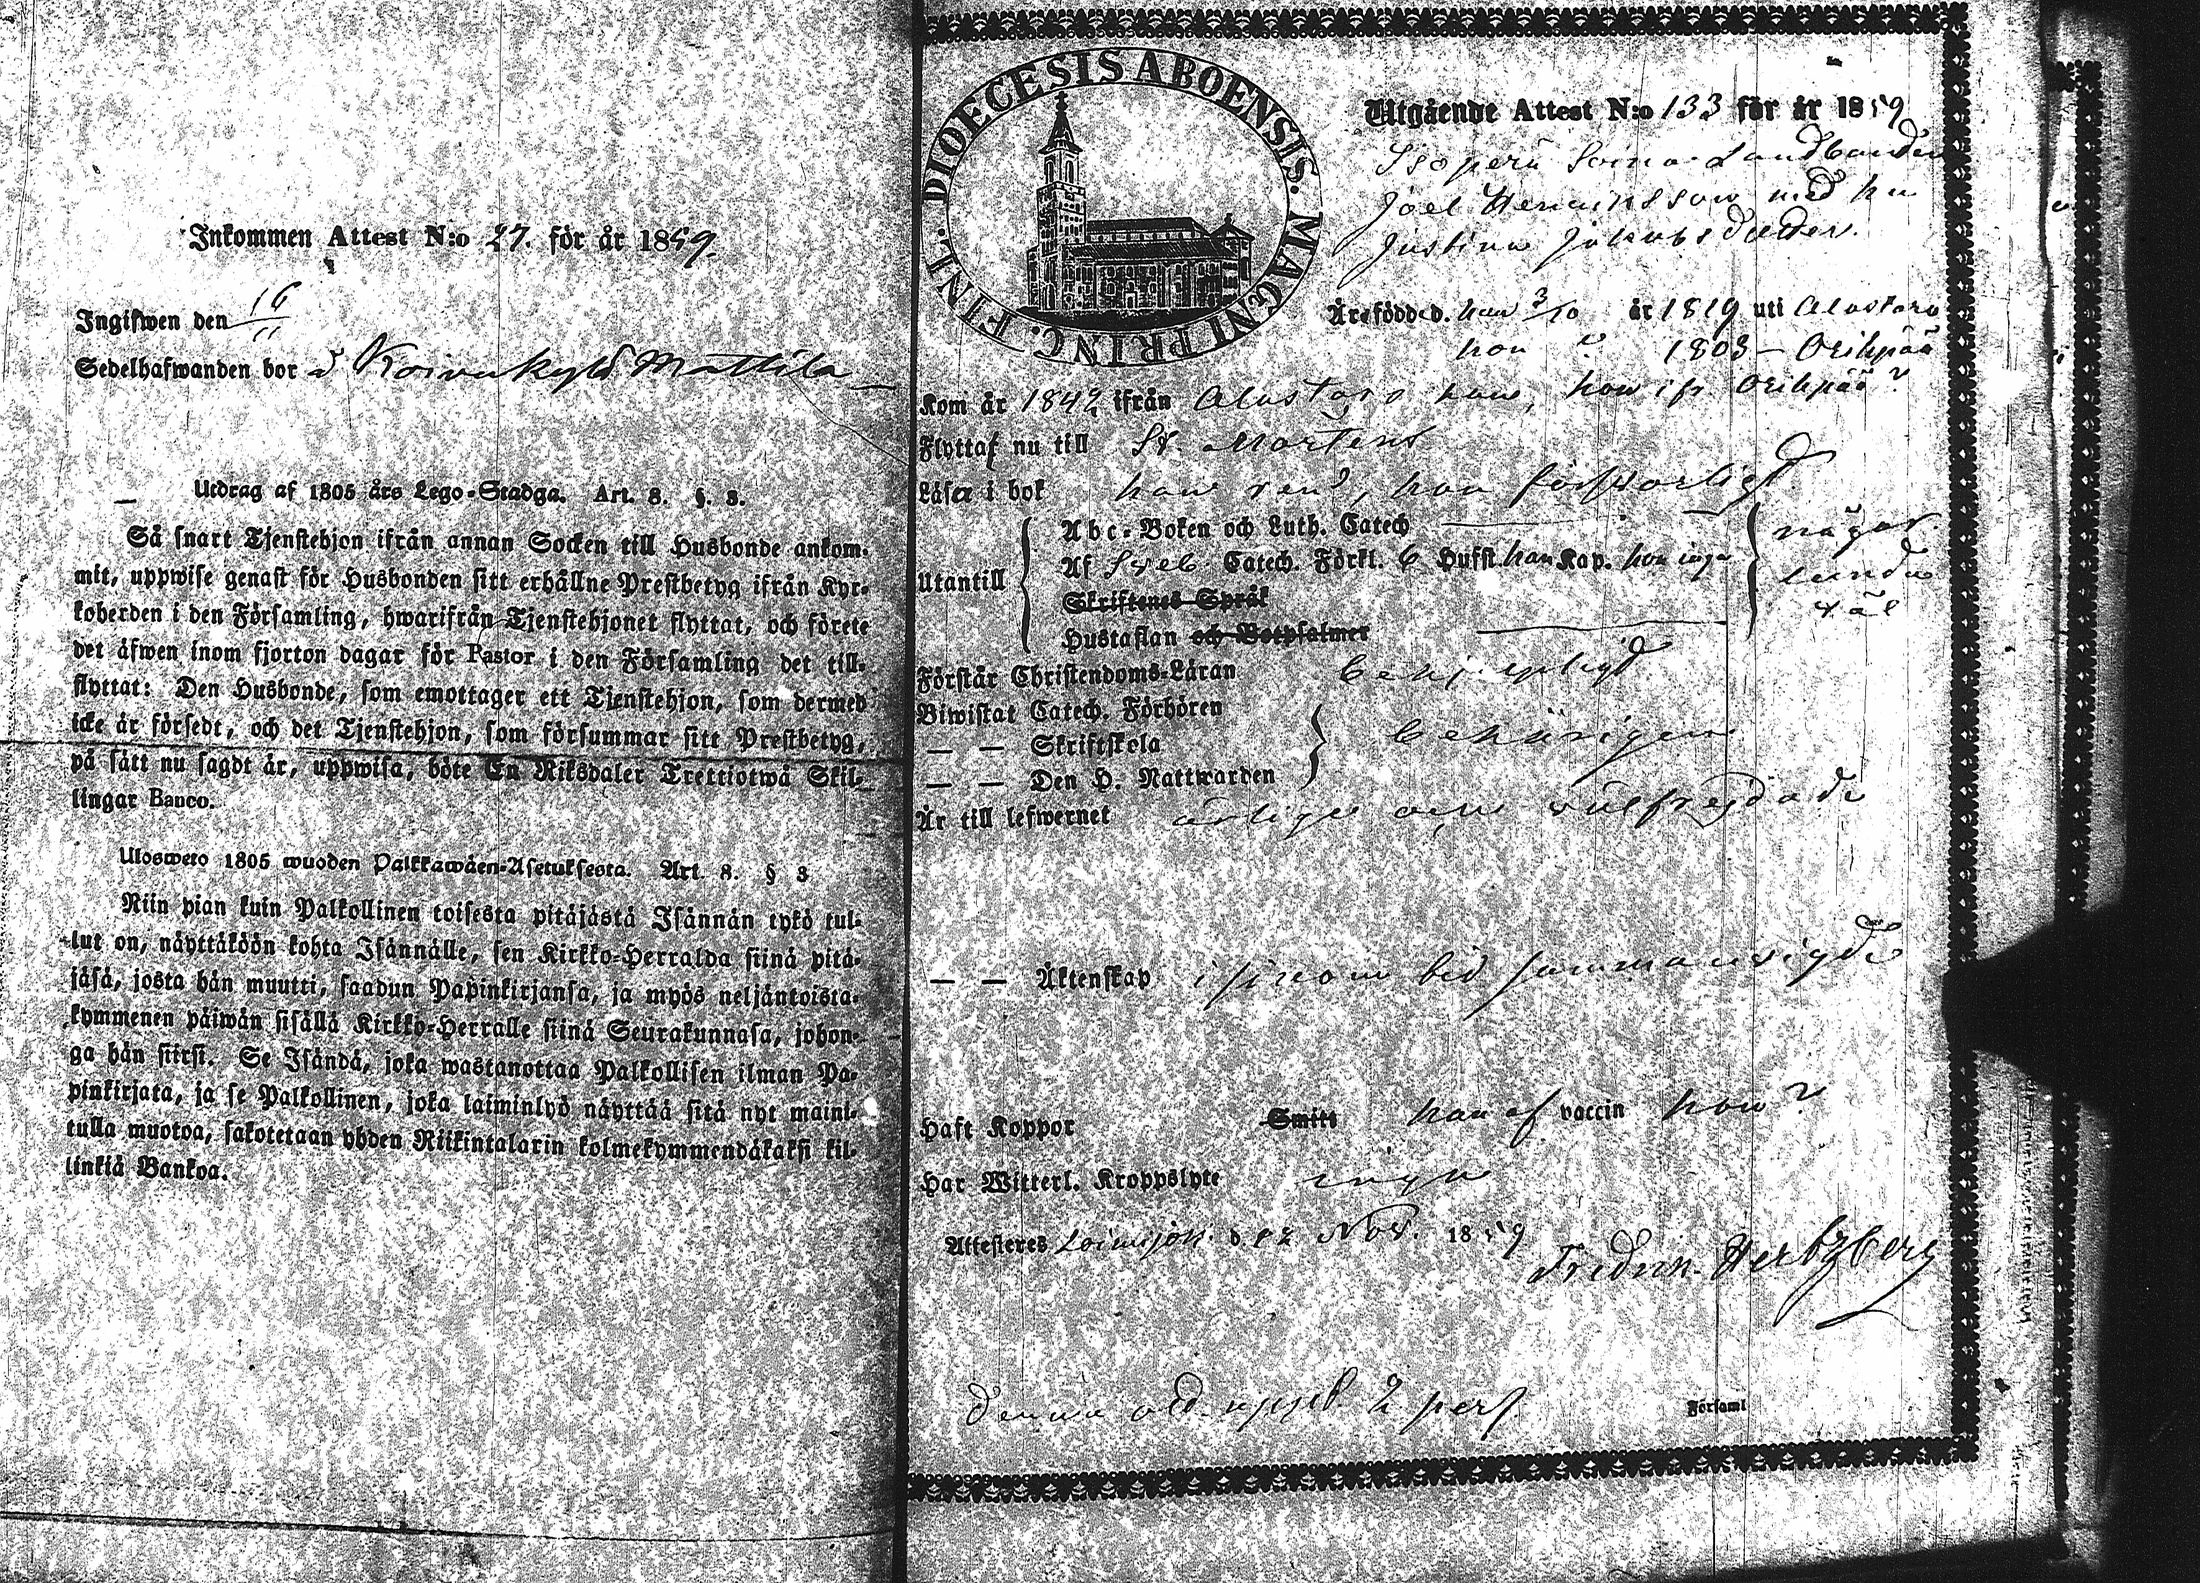 Inkommen Attest N:o 27. för år 1859.
Ingifwen den 16/11
Sedelhafwanden bor å Koivukylä Mattila
Utdrag af 1805 års Lego-Stadga. Art. 8. §. 3.
Så snart Tjenstehjon ifrån annan Socken till Husbonde ankom-
mit, uppwise genast för Husbonden sitt erhållne Prestbetyg ifrån Kyr-
koherden i den Församling, hwarifrån Tjenstehjonet flyttat, och förete
det äfwen inom fjorton dagar för Pastor i den Församling det till-
flyttat: Den Husbonde, som emottager ett Tjenstehjon, som dermed
icke är försedt, och det Tjenstehjon, som försummar sitt Prestbetyg,
på sätt nu sagdt är, uppwisa, böte En Riksdaler Trettiotwå Skil-
lingar Banco.
Ulosweto 1805 wuoden Palkkawäen-Asetuksesta. Art. 8. § 3
Niin pian kuin Palkollinen toisesta pitäjästä Isännän tykö tul-
lut on, näyttäköön kohta Isännälle, sen Kirkko-Herralda siinä pitä-
jäsä, josta hän muutti, saadun Papinkirjansa, ja myös neljäntoista-
kymmenen päiwän sisällä Kirkko-Herralle siinä Seurakunnasa, johon-
ga hän siirsi. Se Isändä, joka wastanottaa Palkollisen ilman Pa-
pinkirjata, ja se Palkollinen, joka laiminlyö näyttää sitä nyt maini-
tulla muotoa, sakotetaan yhden Riikintalarin kolmekymmendäkaksi kil-
linkiä Bankoa.
DIOECESIS ABOENSIS. MAGNI PRINC. FINL.
Utgående Attest N:o 133 för år 1859
Isoperä Landbonden
Joel Henriksson med hu
Justina Jakobsdotter.
Äro födde d. han 3/10 år 1819 uti Alastaro
hon ? 1803 – Orihpää
Kom år 1842 ifrån Alastaro han, hon ifr Orihpää?
Flytta nu till St. Mårtens
Läsa i bok han ren, hon försvarligt
Utantill
Abc-Boken och Luth. Catech
Af Sveb. Catech. Förkl. 6 Hufst. han Kap. hon inga
Skriftenes Språk
Hustaflan och Botpsalmer
någor
lunda
väl
Förstår Christendoms-Läran behjelpligt
Biwistat Catech. Förhören
— — Skriftskola
— — Den H. Nattwarden
behörigen
Är till lefwernet ärlige och välfrejdade
— — Äktenskap sinom bed sammanvigde
Haft Koppor Smitt han af vaccin hon?
Har Witterl. Kroppslyte inga
Attesteres Loimijoki d. 12 Nov. 1859
Fredrik Hertzberg
Denna upptar 2 pers.
Församl